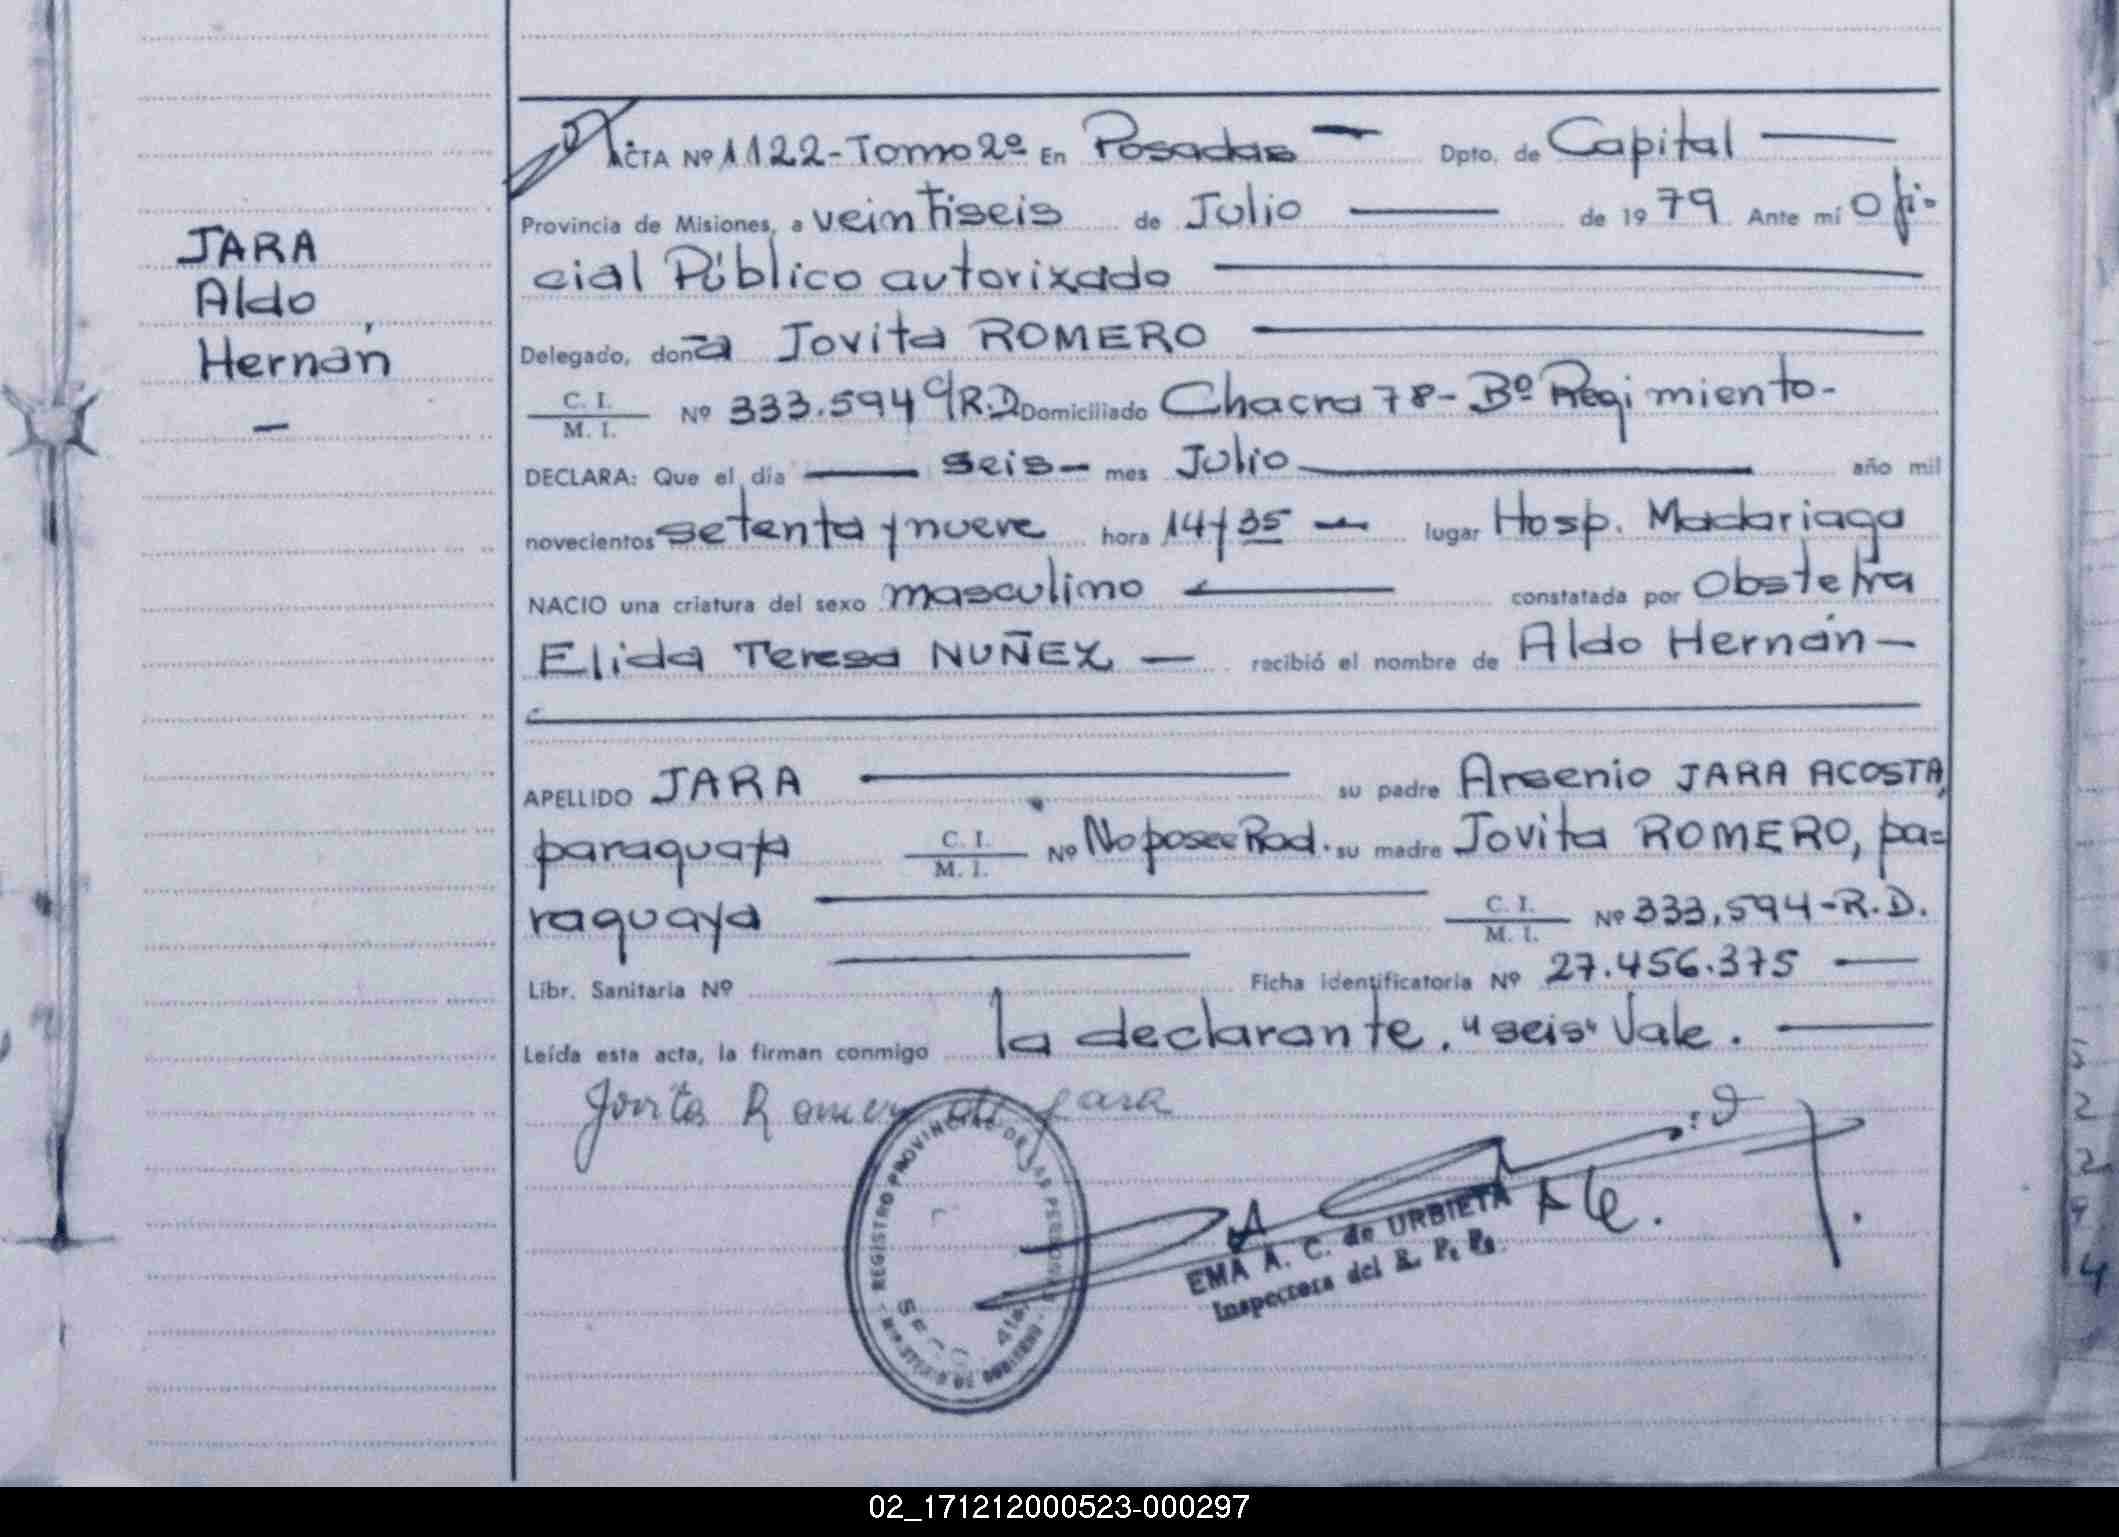 JARA
Aldo
Hernán
ACTA Nº 1122-Tomo 2º En Posadas Dpto. de Capital
Provincia de Misiones, a veintiseis de Julio de 1979 Ante mí Ofi-
cial Público autorizado
Delegado, doña Jovita ROMERO
C. I. / M. I. Nº 333.594 C/R.D Domiciliado Chacra 78- Bº Regimiento-
DECLARA: Que el día seis- mes Julio año mil
novecientos setenta y nueve hora 14/35 lugar Hosp. Madariaga
NACIO una criatura del sexo masculino constatada por Obstetra
Elida Teresa NUÑEZ recibió el nombre de Aldo Hernán
APELLIDO JARA su padre Arsenio JARA ACOSTA,
paraguayo C. I. / M. I. Nº No posee Rad. su madre Jovita ROMERO, pa=
raguaya C. I. / M. I. Nº 333,594-R.D.
Libr. Sanitaria Nº Ficha identificatoria Nº 27.456.375
Leída esta acta, la firman conmigo la declarante. "seis" Vale.
Jovita Romero de Jara
REGISTRO PROVINCIAL DE LAS PERSONAS
EMA A. C. de URBIETA
Inspectora del R. P. Ps.
02_171212000523-000297